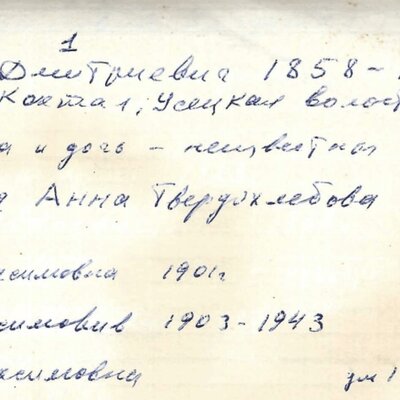 1
Дмитриевич 1858-
Коктал, Усецкая волост
а и дочь - неизвестная
Анна Твердохлебова
симовна 1901г
симовив 1903-1943
ксимовна ум 1